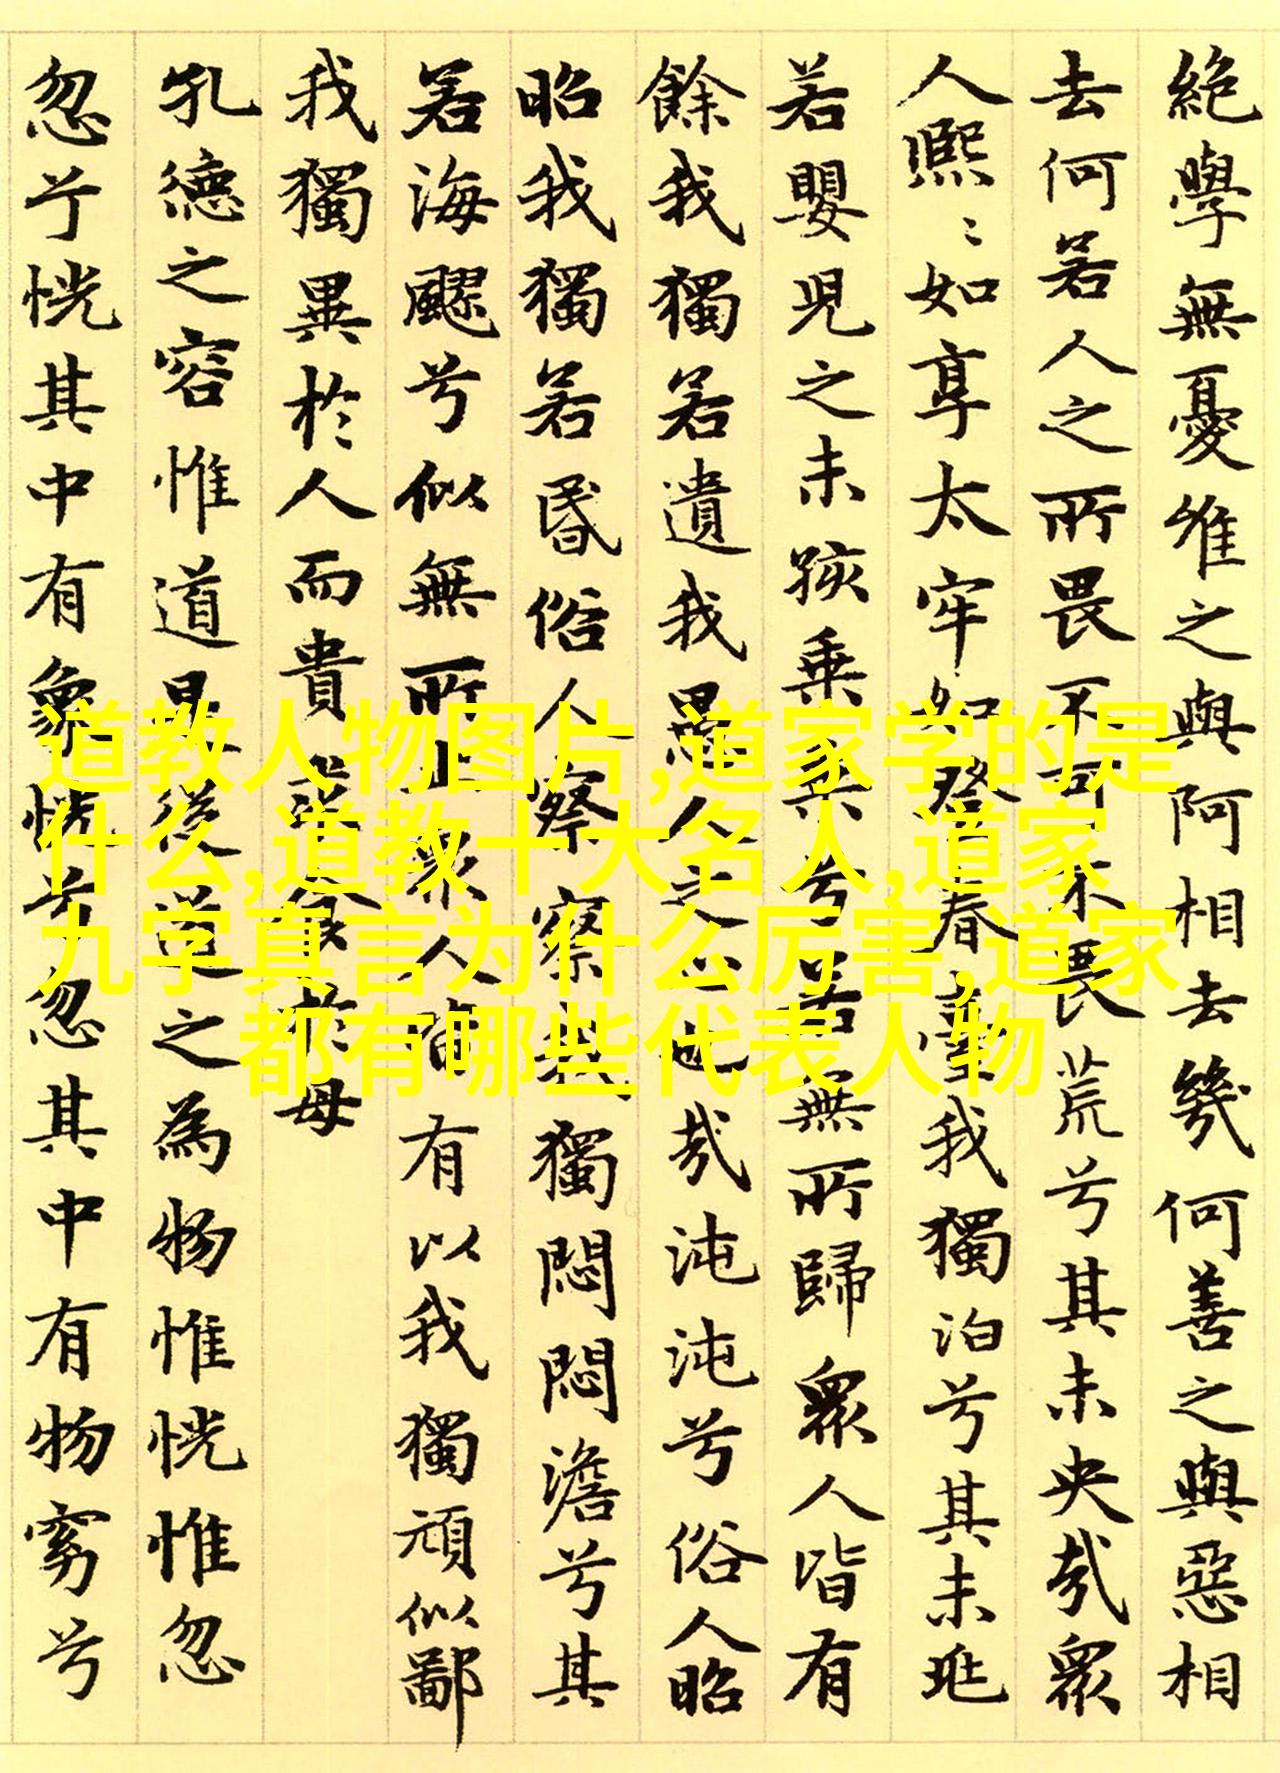 絕學無憂唯之與阿相去幾何善之與惡相
去何若人之所畏不可不畏荒兮其未央哉眾
人熙〻如享太牢如登春臺我獨泊兮其未兆
若嬰兒之未孩乗乗兮若無所歸眾人皆有
餘我獨若遺我愚人之心也哉沌沌兮俗人昭
昭我獨若昏俗人察察我獨悶悶澹兮其
若海飂兮似無所止眾人皆有以我獨頑似鄙
我獨異於人而貴求食於母
孔德之容惟道是從道之為物惟恍惟忽
忽兮恍其中有象恍兮忽其中有物窈兮
道教人物图片,道家学的是
什么,道教十大名人,道家
九字真言为什么厉害,道家
都有哪些代表人物